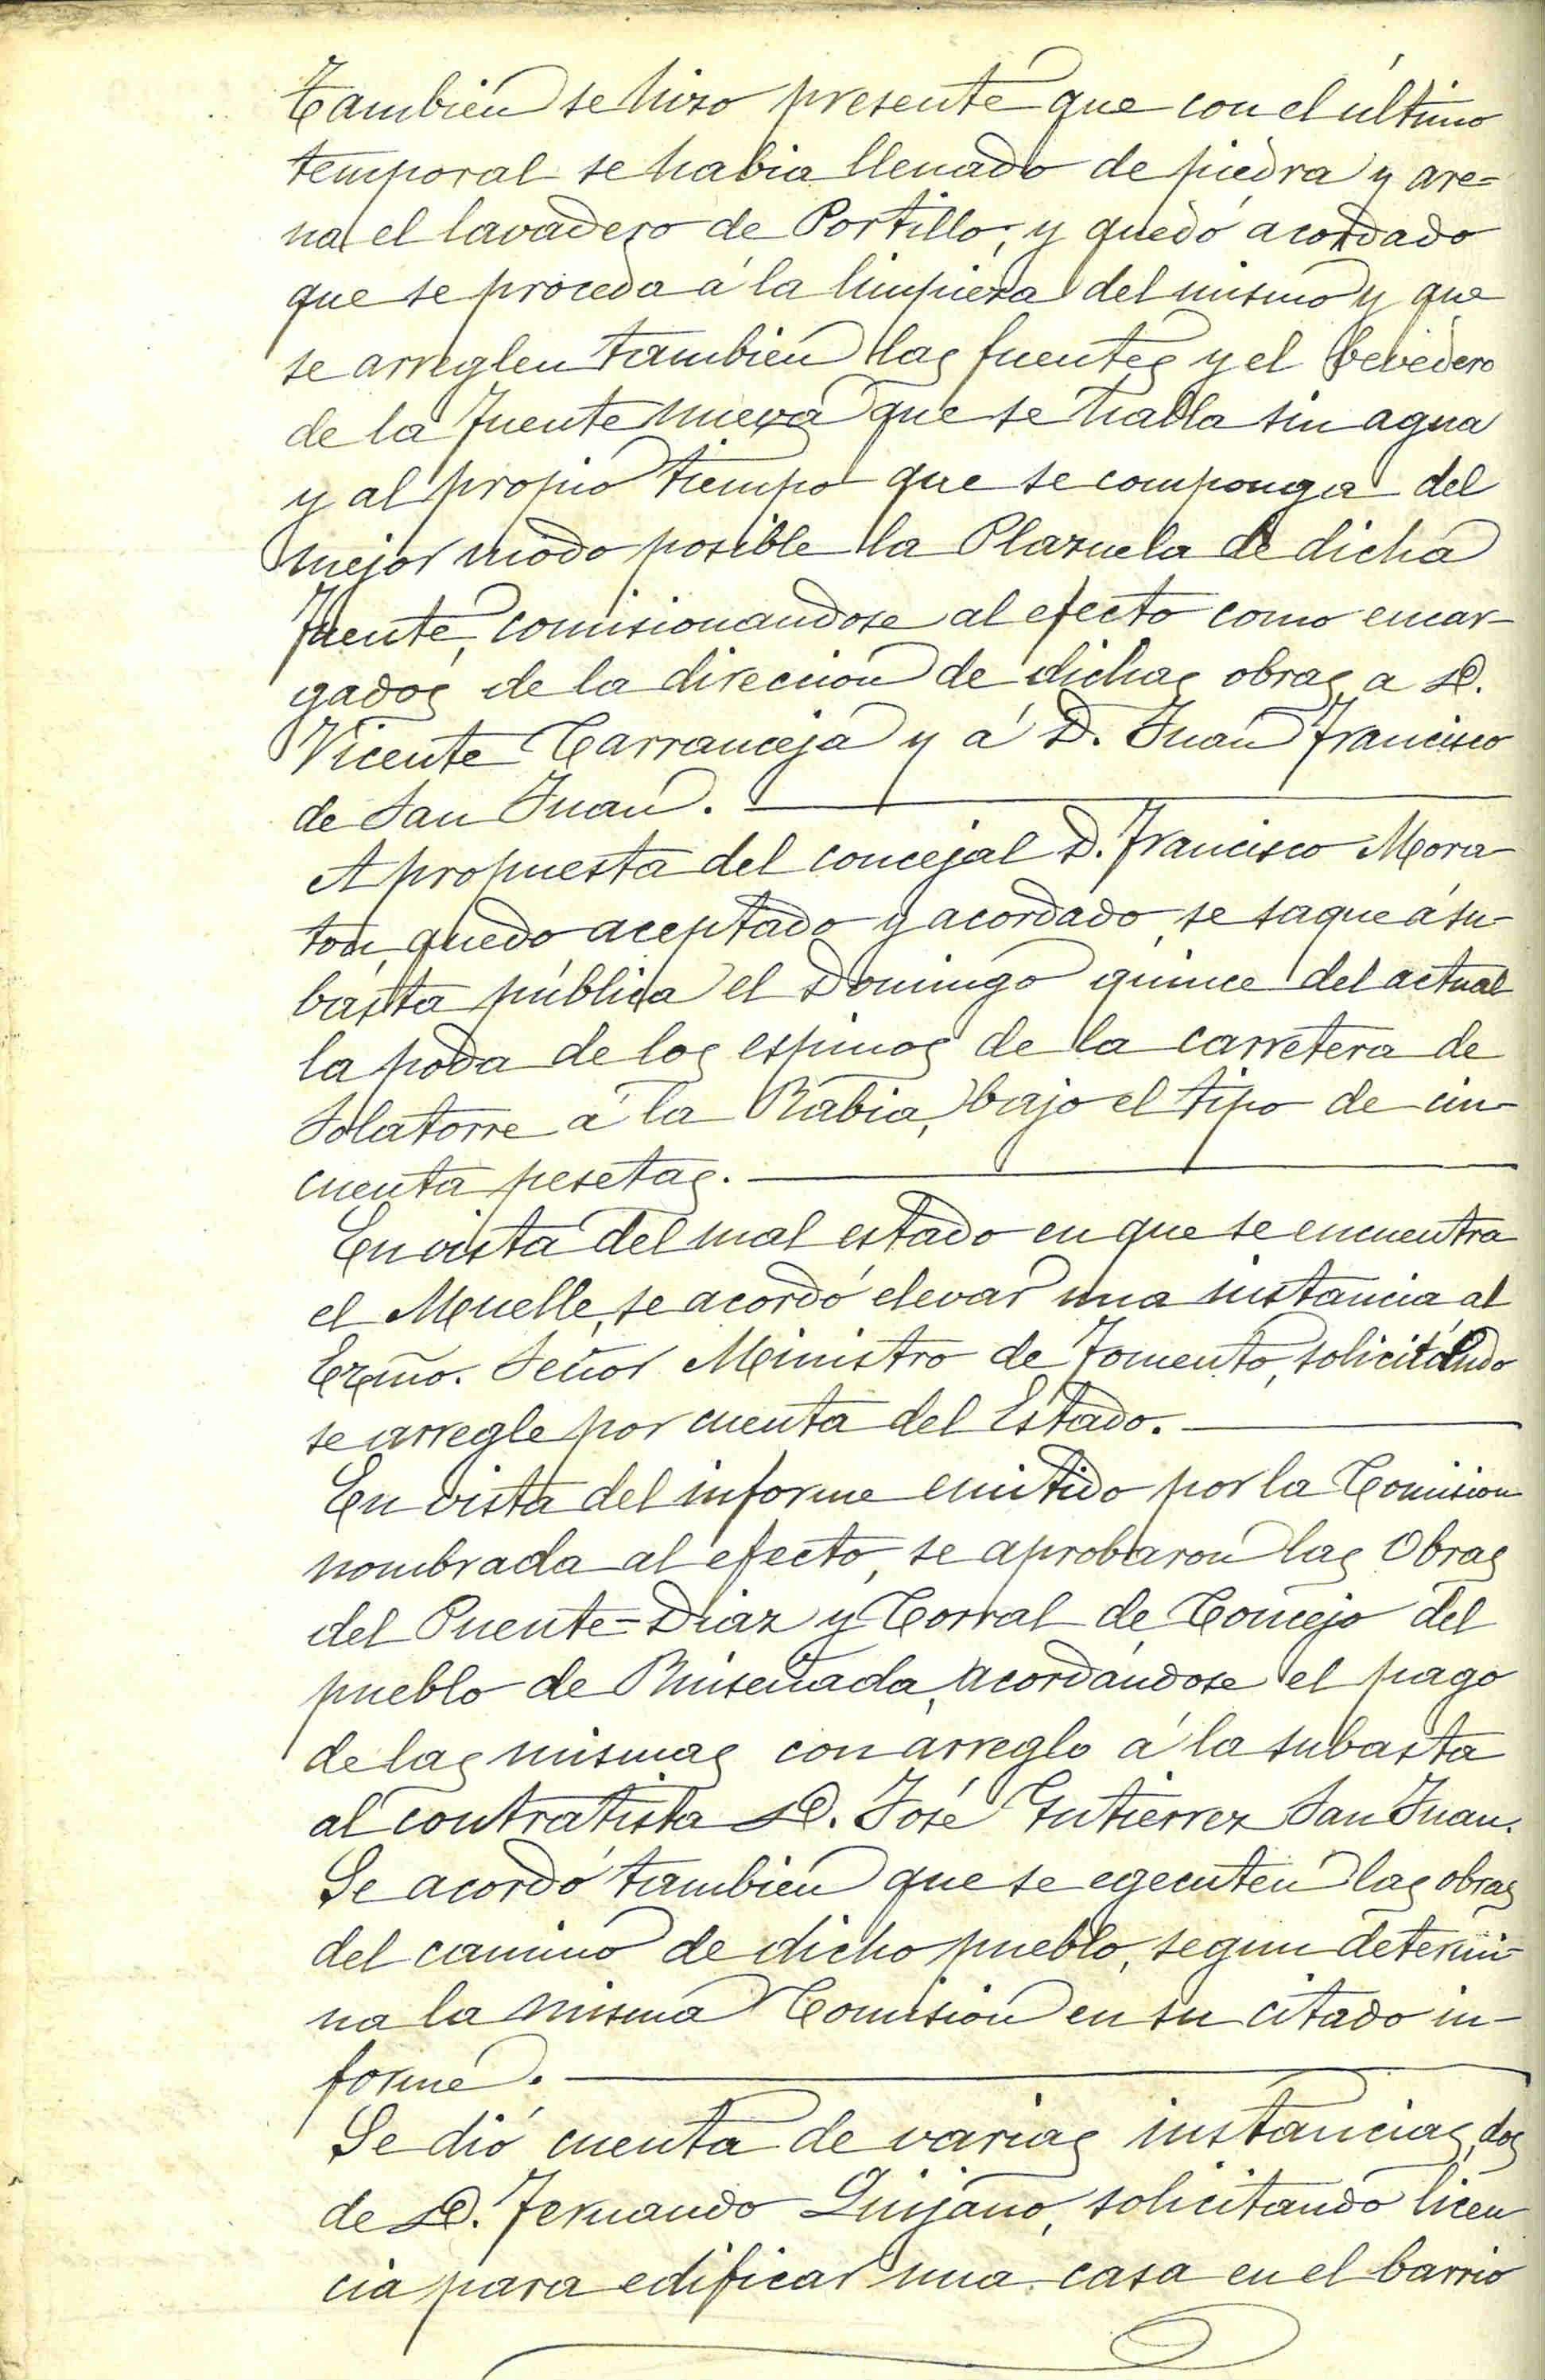 Tambien se hizo presente que con el último
temporal se habia llenado de piedra y are=
na el lavadero de Portillo; y quedó acordado
que se proceda á la limpieza del mismo y que
se arreglen tambien las fuentes y el bevedero
de la Fuente nueva que se halla sin agua
y al propio tiempo que se componga del
mejor modo posible la Plazuela de dicha
Fuente, comisionandose al efecto como encar-
gados de la direccion de dichas obras a D.
Vicente Carranceja y á D. Juan Francisco
de San Juan.
A propuesta del concejal D. Francisco Mora-
ton, quedo aceptado y acordado, se saque á su-
basta pública el Domingo quince del actual
la poda de los espinos de la carretera de
Solatorre á la Rabia, bajo el tipo de cin-
cuenta pesetas.
En vista del mal estado en que se encuentra
el Muelle, se acordó elevar una instancia al
Ezmo. Señor Ministro de Fomento, solicitando
se arregle por cuenta del Estado.
En vista del informe emitido por la Comision
nombrada al efecto, se aprobaron las Obras
del Puente-Diaz y Corral de Concejo del
pueblo de Ruiseñada, acordándose el pago
de las mismas con arreglo á la subasta
al contratista D. José Gutierrez San Juan.
Se acordó tambien que se egecuten las obras
del camino de dicho pueblo, segun determi-
na la misma Comision en su citado in-
forme.
Se dió cuenta de varias instancias, dos
de D. Fernando Quijano, solicitando licen
cia para edificar una casa en el barrio